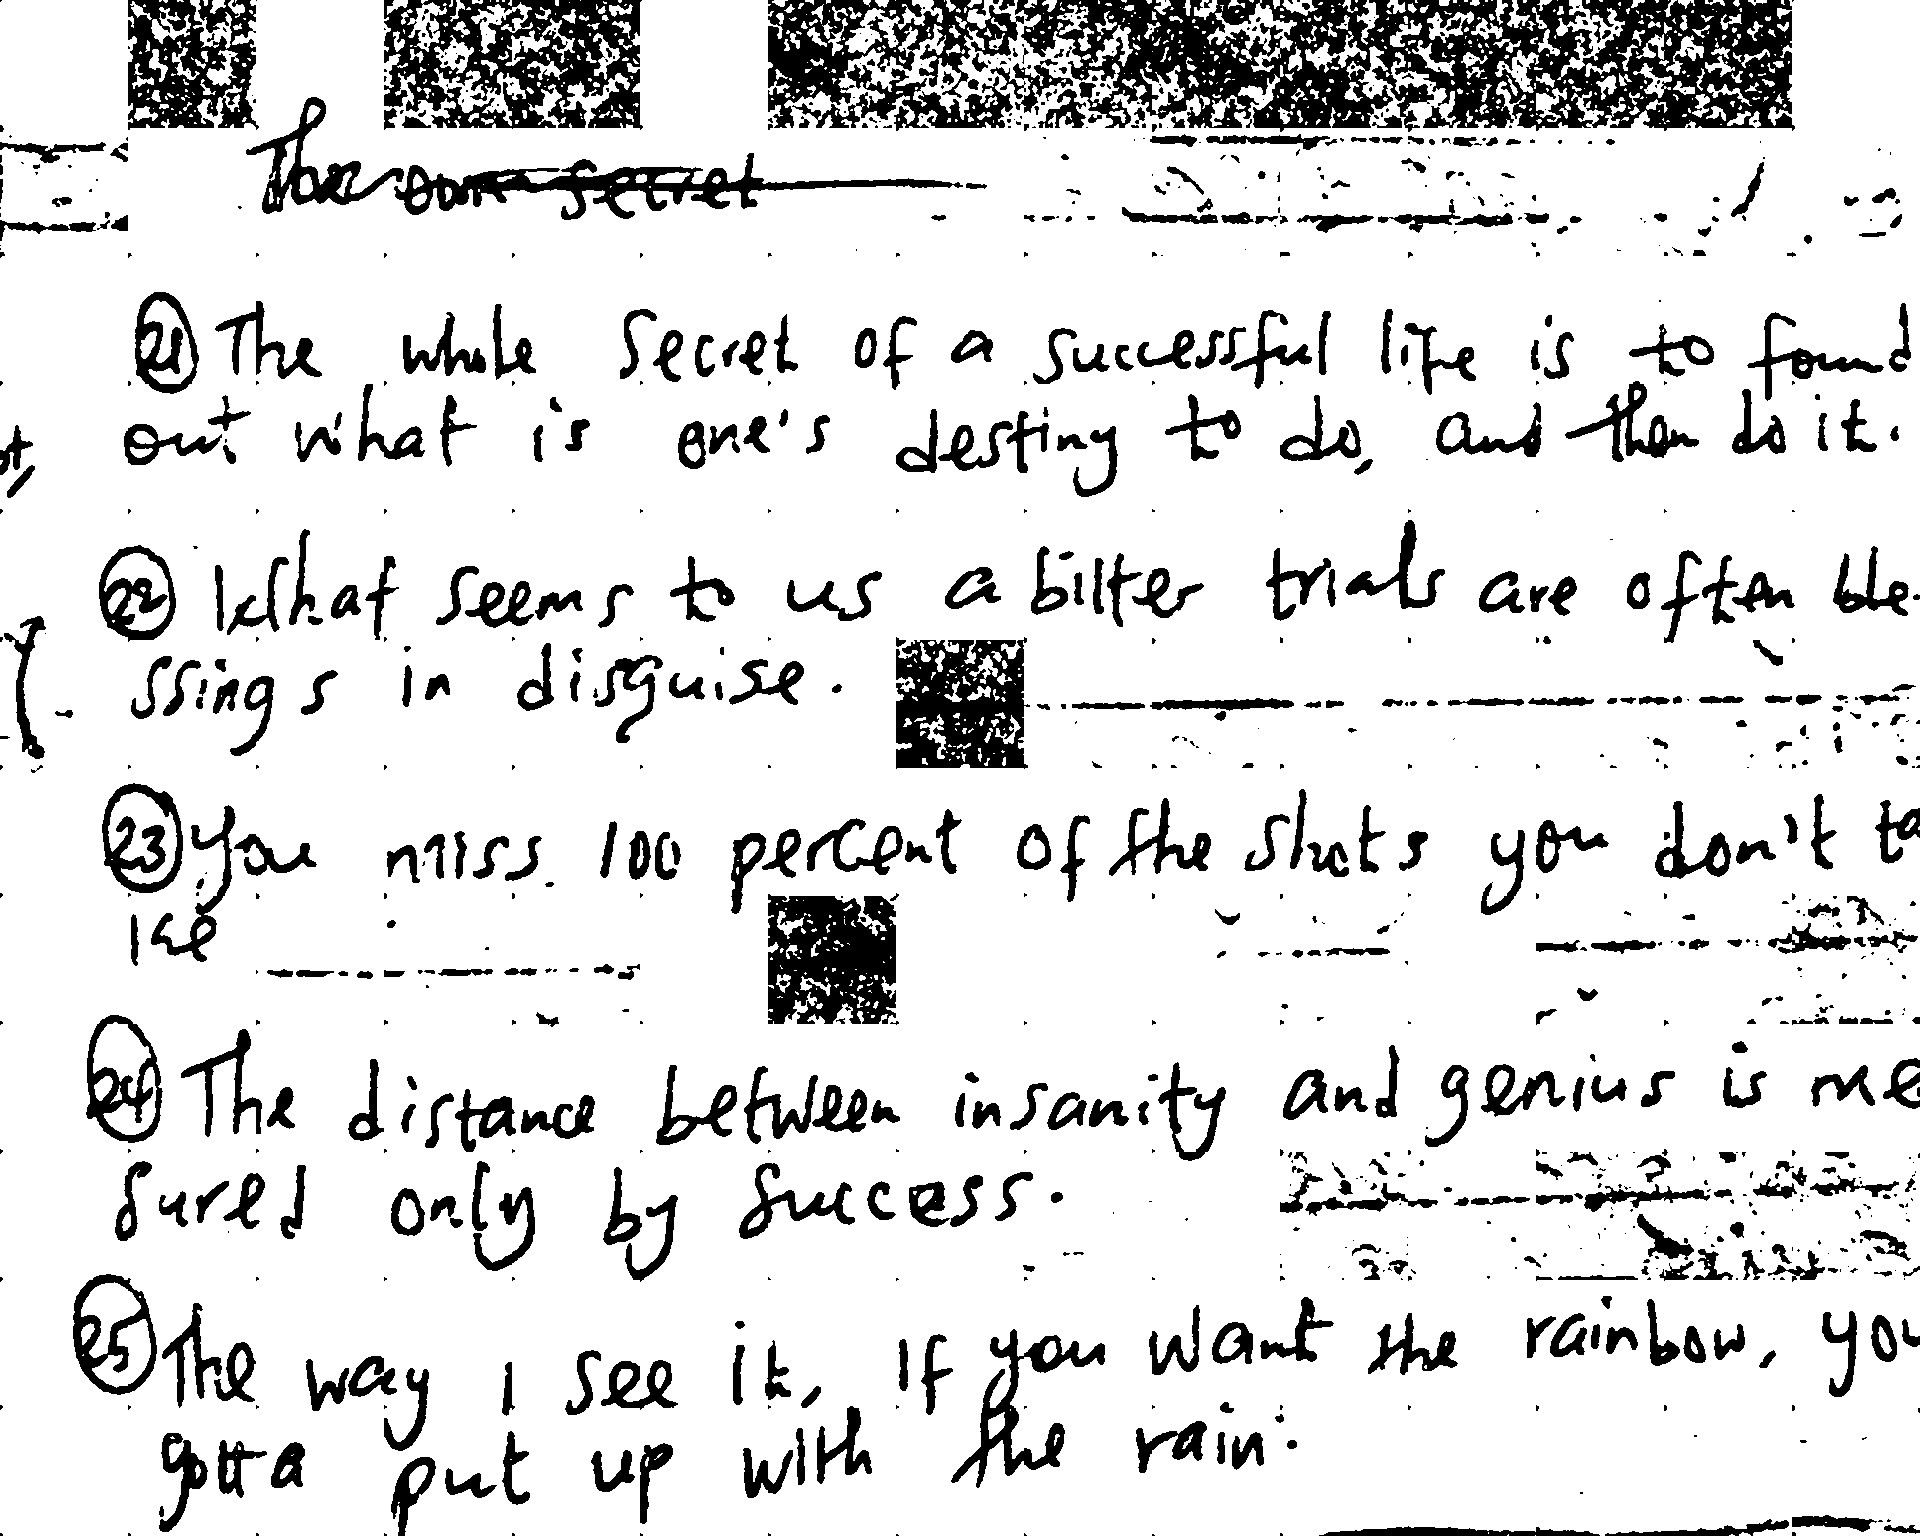 ㉑ The whole Secret of a successful life is to found
out what is one's destiny to do, and then do it.
㉒ What seems to us a bitter trials are often ble-
ssings in disguise.
㉓ You miss 100 percent of the shots you don't ta
ke
㉔ The distance between insanity and genius is me
sured only by success.
㉕ The way I see it, If you want the rainbow, you
gotta put up with the rain.